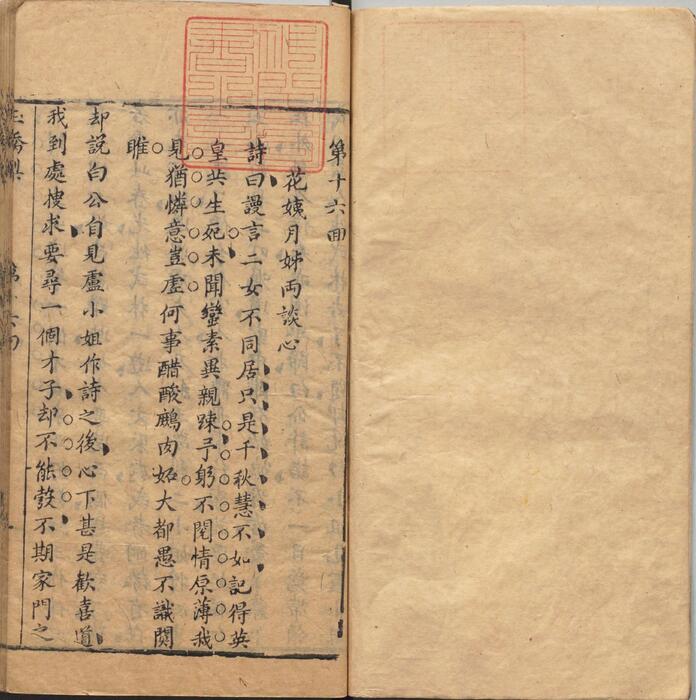 第十六囬
花姨月姊兩談心
詩曰謾言二女不同居只是千秋慧不如記得英
皇共生死未聞蠻素異親踈予躬不閱情原薄我
見猶憐意豈虛何事醋酸鷓肉妬大都愚不識関
雎
却說白公自見盧小姐作詩之後心下甚是歡喜道
我到處捜求要尋一個才子却不能彀不期家門之
玉嬌梨
第十六囬